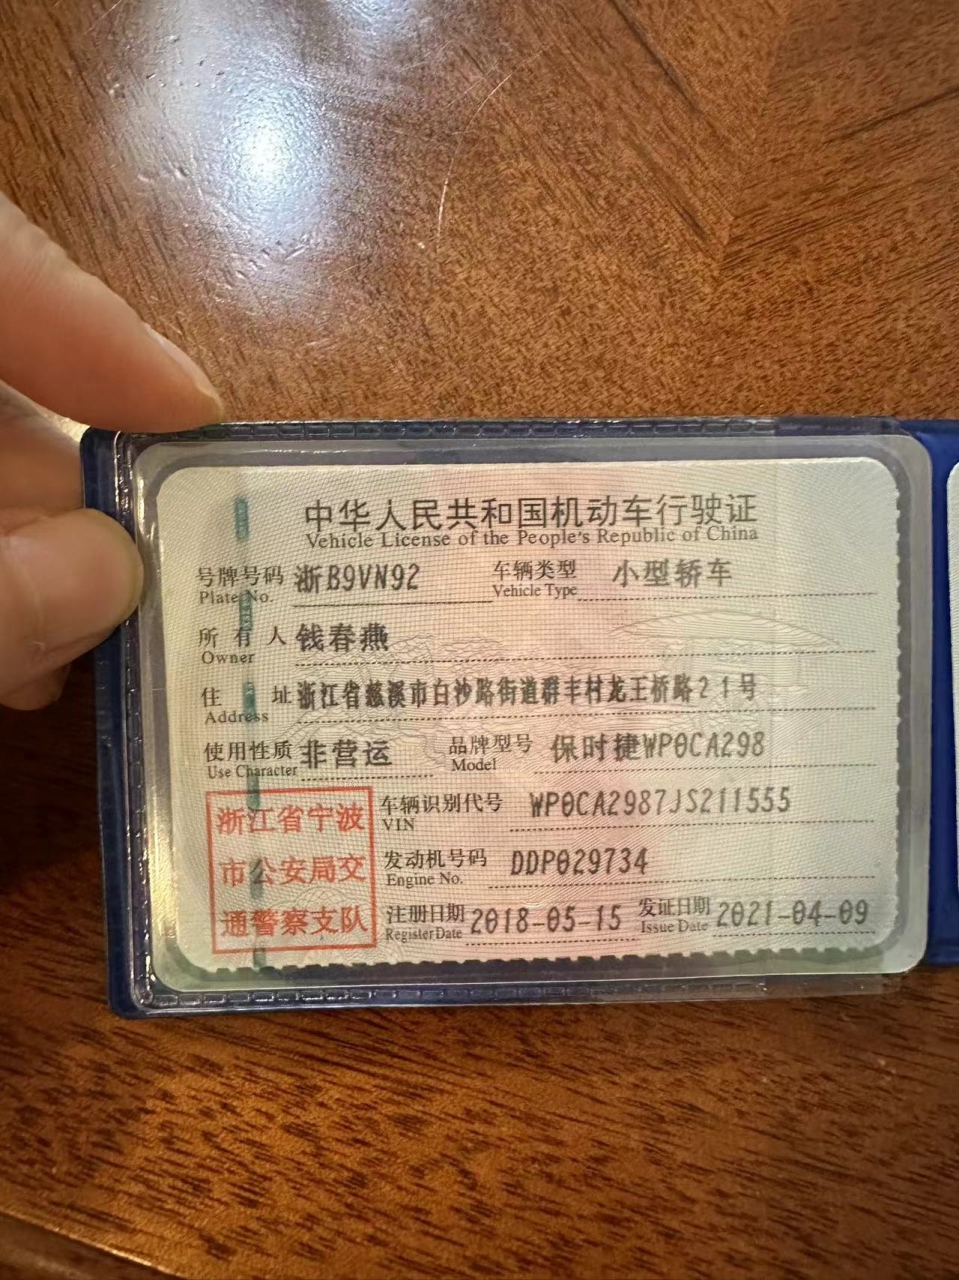 中华人民共和国机动车行驶证
Vehicle License of the People's Republic of China
号牌号码 浙B9VN92 车辆类型 小型轿车
Plate No. Vehicle Type
所有人 钱春燕
Owner
住址 浙江省慈溪市白沙路街道群丰村龙王桥路21号
Address
使用性质 非营运 品牌型号 保时捷WP0CA298
Use Character Model
浙江省宁波
市公安局交
通警察支队
车辆识别代号 WP0CA2987JS211555
VIN
发动机号码 DDP029734
Engine No.
注册日期 2018-05-15 发证日期 2021-04-09
Register Date Issue Date